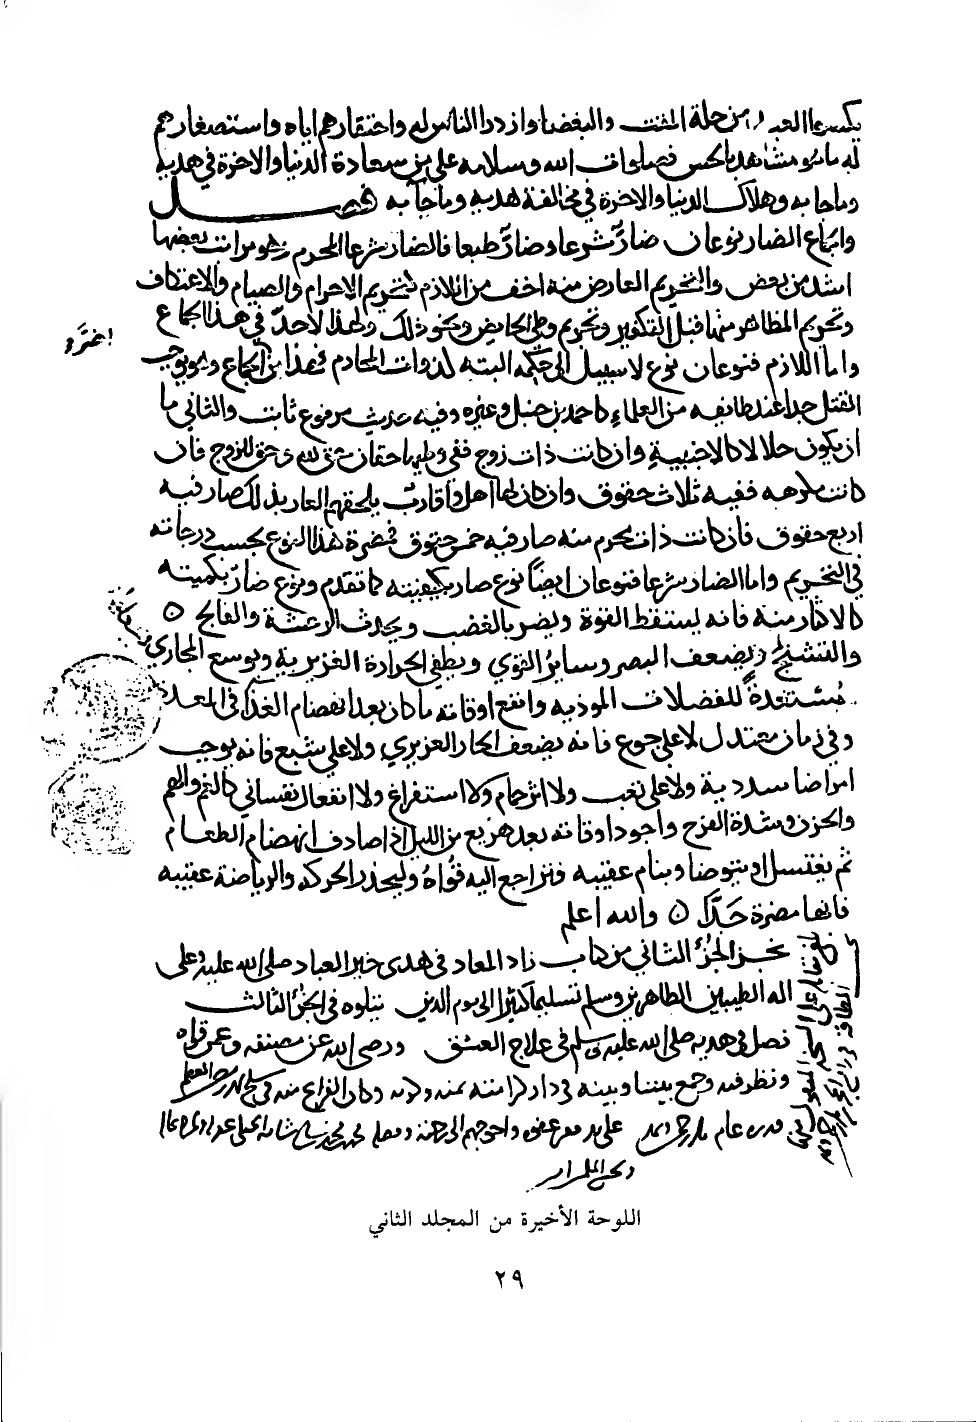 يكسبها العبد من جملة المقت والبغضا وازدرا الناس له واحتقارهم اياه واستصغارهم
له ما هو مشاهد بالحس فصلوات الله وسلامه على من سعادة الدنيا والاخرة في هديه
وما جا به وهلاك الدنيا والاخرة في مخالفة هديه وما جآ به فصل
واجماع الضار نوعان ضارّ شرعا وضارّ طبعا فالضار شرعا المحرم وهو مراتب بعضها
اشد من بعض والتحريم العارض منه اخف من اللازم كتحريم الاحرام والصيام والاعتكاف
وتحريم المظاهر منها قبل التكفير وتحريم وطي الحايض ونحو ذلك ولهذا لا حدّ في هذا الجماع
واما اللازم فنوعان نوع لا سبيل الى حله البته كذوات المحارم فهذا من الجماع وهو يوجب
القتل حدا عند طائفه من العلماء كاحمد بن حنبل وغيره وفيه حديث مرفوع ثابت والثاني ما
ان يكون حلالا كالاجنبية وان كانت ذات زوج ففي وطيها حقان حق لله وحق للزوج فان
كانت مكرهه ففيه ثلاث حقوق وان كان لها اهل واقارب يلحقهم العار بذلك صار فيه
اربع حقوق فان كانت ذات محرم منه صار فيه خمس حقوق فمضرة هذا النوع بحسب درجاته
في التحريم واما الضار شرعا فنوعان ايضا نوع ضار بكيفيته كما تقدم ونوع ضارّ بكميته
كالاكثار منه فانه يسقط القوة ويضر بالعصب ويحدث الرعشة والفالج
والتشنج ويضعف البصر وسائر القوي ويطفي الحرارة الغريزية ويوسع المجاري
مستعدة للفضلات الموذيه وانفع اوقاته ما كان بعد انهضام الغذا في المعدة
وفي زمان معتدل لا على جوع فانه يضعف الحار الغريزي ولا على شبع فانه يوجب
امراضا سددية ولا على تعب ولا اثر حمام ولا استفراغ ولا انفعال نفساني كالغم والهم
والحزن وشدة الفرح واجود اوقاته بعد هزيع من الليل اذا صادف انهضام الطعام
ثم يغتسل او يتوضا وينام عقيبه فتراجع اليه قواهُ وليحذر الحركه والرياضة عقيبه
فانها مضرة جدًّا والله اعلم
نجز الجزُ الثاني من كتاب زاد المعاد في هدى خير العباد صلى الله عليه وعلى
اله الطيبين الطاهرين وسلم تسليما كثيرا الى يوم الدين نتلوه في الجزُ الثالث
فصل في هديه صلى الله عليه وسلم في علاج العشق ورضى الله عن مصنفه وعمن قراه
ونظر فيه وجمع بيننا وبينه في دار كرامته بمنه وكرمه وكان الفراغ منه في
اللوحة الأخيرة من المجلد الثاني
٢٩